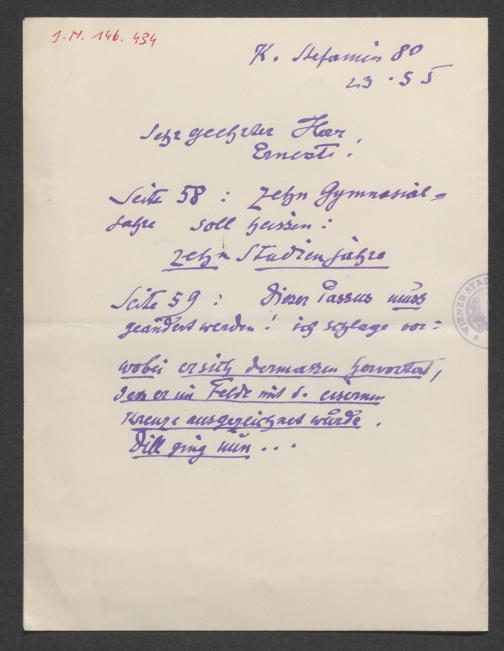 J.N. 146.434
K. Stefanin 80
23 · 5 5
Sehr geehrter Herr
Ernesti!
Seite 58 : Zehn Gymnasial=
jahre soll heissen :
zehn Studienjahre
Seite 59 : Dieser Passus muss
geändert werden! ich schlage vor :
wobei er sich dermassen hervortat,
dass er im Felde mit d. eisernen
Kreuze ausgezeichnet wurde.
Dill ging nun ...
WIENER STAD